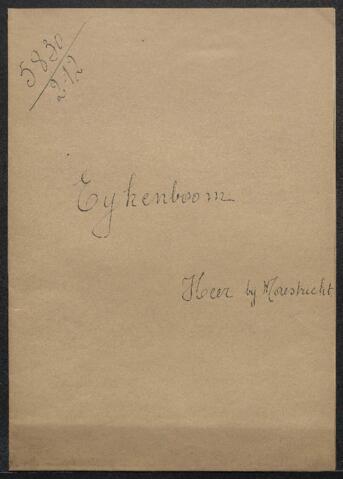 5830
2.12
Eykenboom
Heer by Maestricht